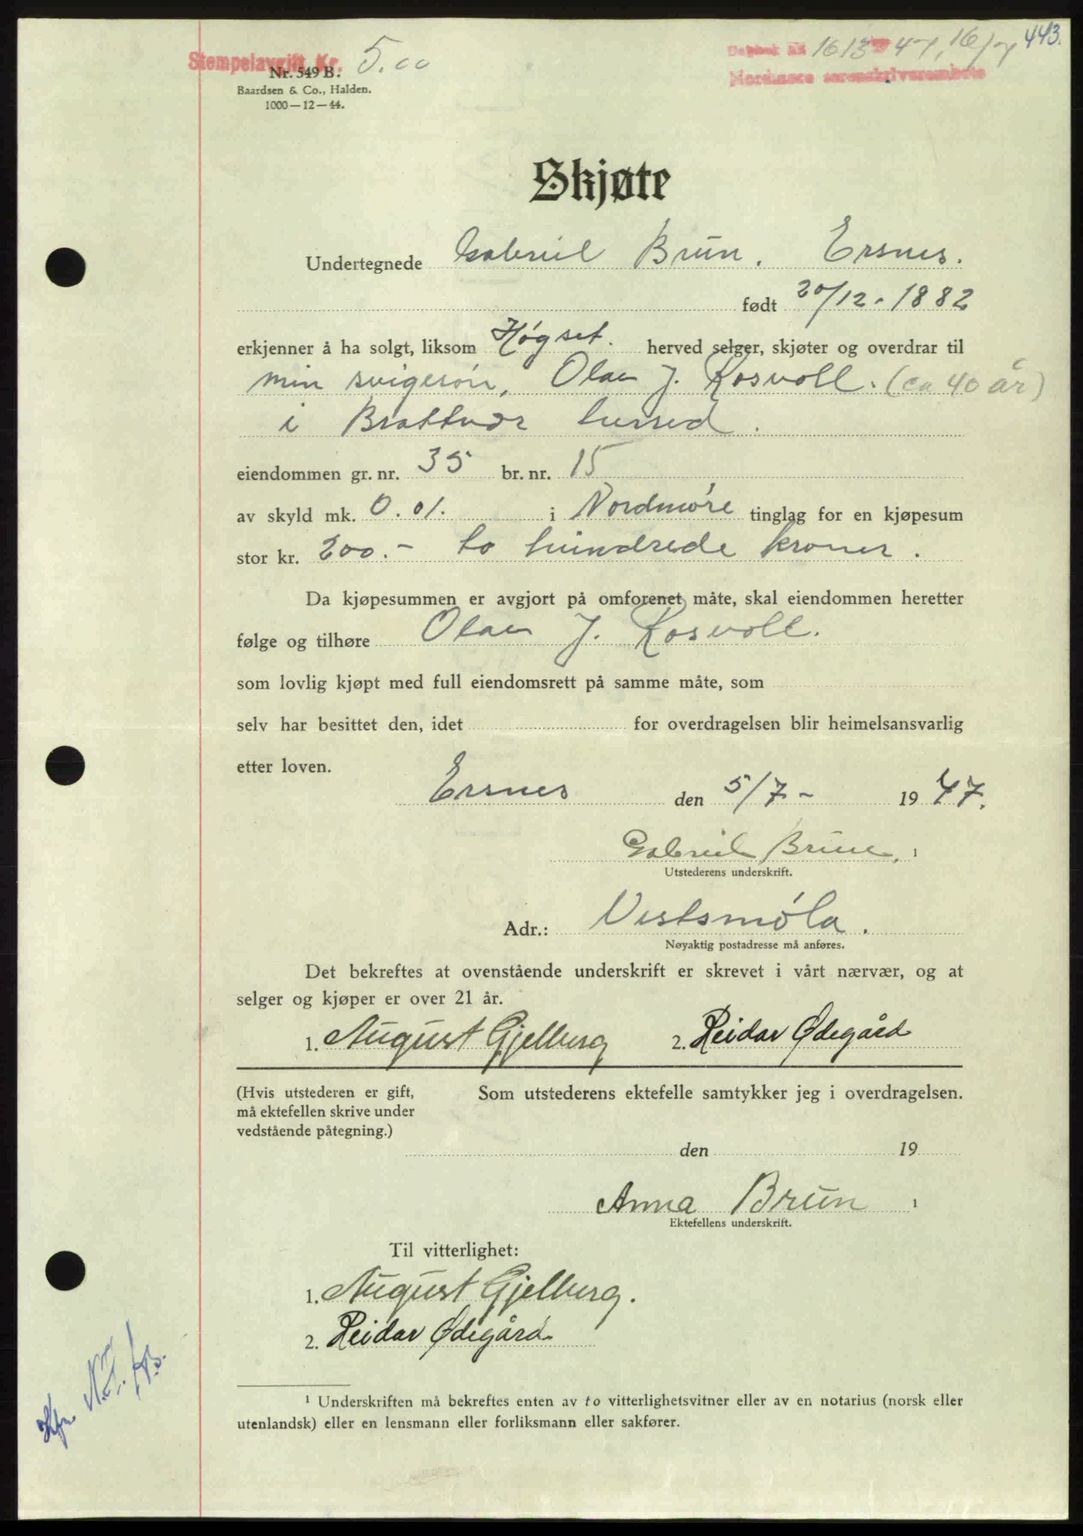 443.
Stempelavgift Kr. 5.00
Dagbok Nr 1613 47, 16/7
Nordmøre sorenskriverembete
Nr. 549 B.
Baardsen & Co., Halden.
1000—12—44.
Skjøte
Undertegnede Gabriel Brun. Ersnes.
født 20/12-1882
erkjenner å ha solgt, liksom Høgset. herved selger, skjøter og overdrar til
min svigersøn, Olav J. Rosvoll. (ca 40 år)
i Brattvær herred.
eiendommen gr. nr. 35 br. nr. 15
av skyld mk. 0.01. i Nordmøre tinglag for en kjøpesum
stor kr. 200.- to hundrede kroner.
Da kjøpesummen er avgjort på omforenet måte, skal eiendommen heretter
følge og tilhøre Olav J. Rosvoll.
som lovlig kjøpt med full eiendomsrett på samme måte, som
selv har besittet den, idet for overdragelsen blir heimelsansvarlig
etter loven.
Ersnes den 5/7- 1947.
Gabriel Brun. ¹
Utstederens underskrift.
Adr.: Vestsmøla.
Nøyaktig postadresse må anføres.
Det bekreftes at ovenstående underskrift er skrevet i vårt nærvær, og at
selger og kjøper er over 21 år.
1. August Gjelberg 2. Reidar Ødegård
(Hvis utstederen er gift, Som utstederens ektefelle samtykker jeg i overdragelsen.
må ektefellen skrive under
vedstående påtegning.)
den 19
Anna Brun ¹
Ektefellens underskrift.
Til vitterlighet:
1. August Gjelberg.
2. Reidar Ødegård
¹ Underskriften må bekreftes enten av to vitterlighetsvitner eller av en notarius (norsk eller
utenlandsk) eller en lensmann eller forliksmann eller sakfører.